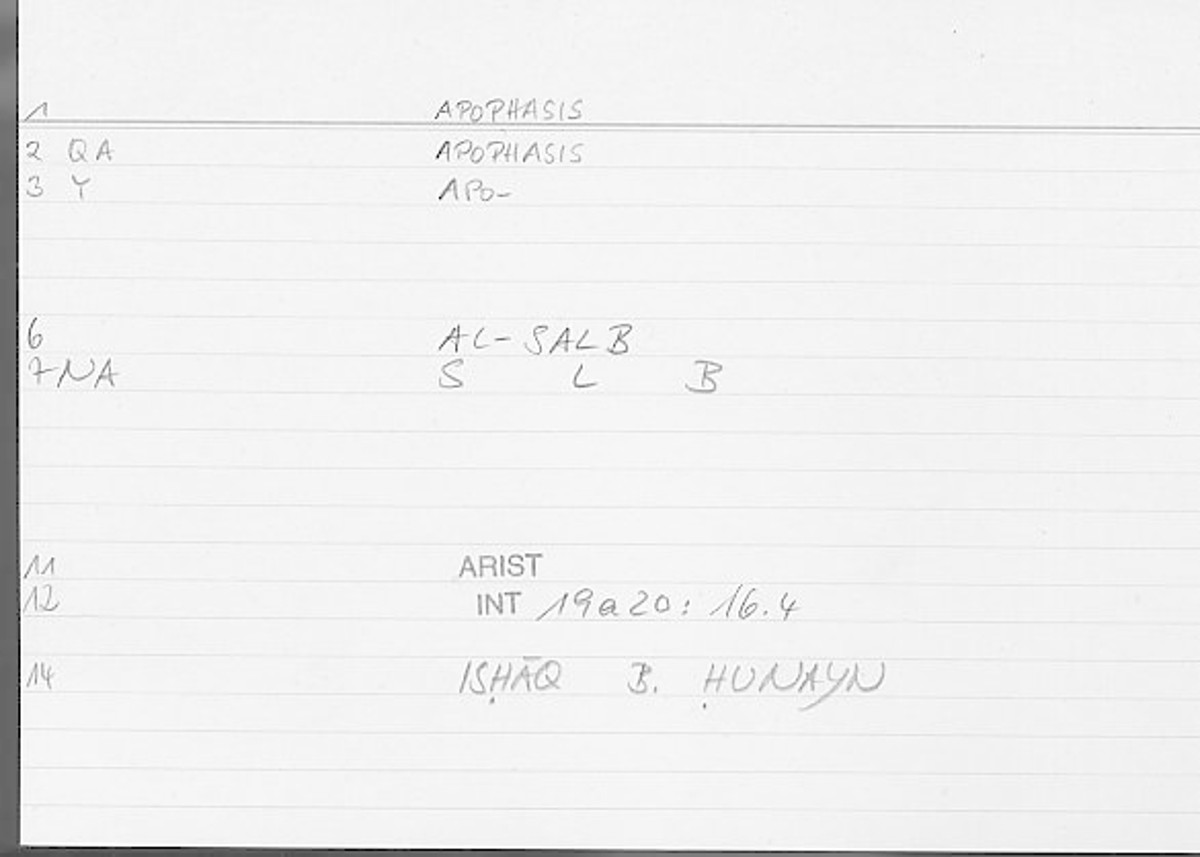 1 APOPHASIS
2 QA APOPHASIS
3 Y APO-
6 AL-SALB
7 NA S L B
11 ARIST
12 INT 19a20: 16.4
14 ISḤĀQ B. ḤUNAYN